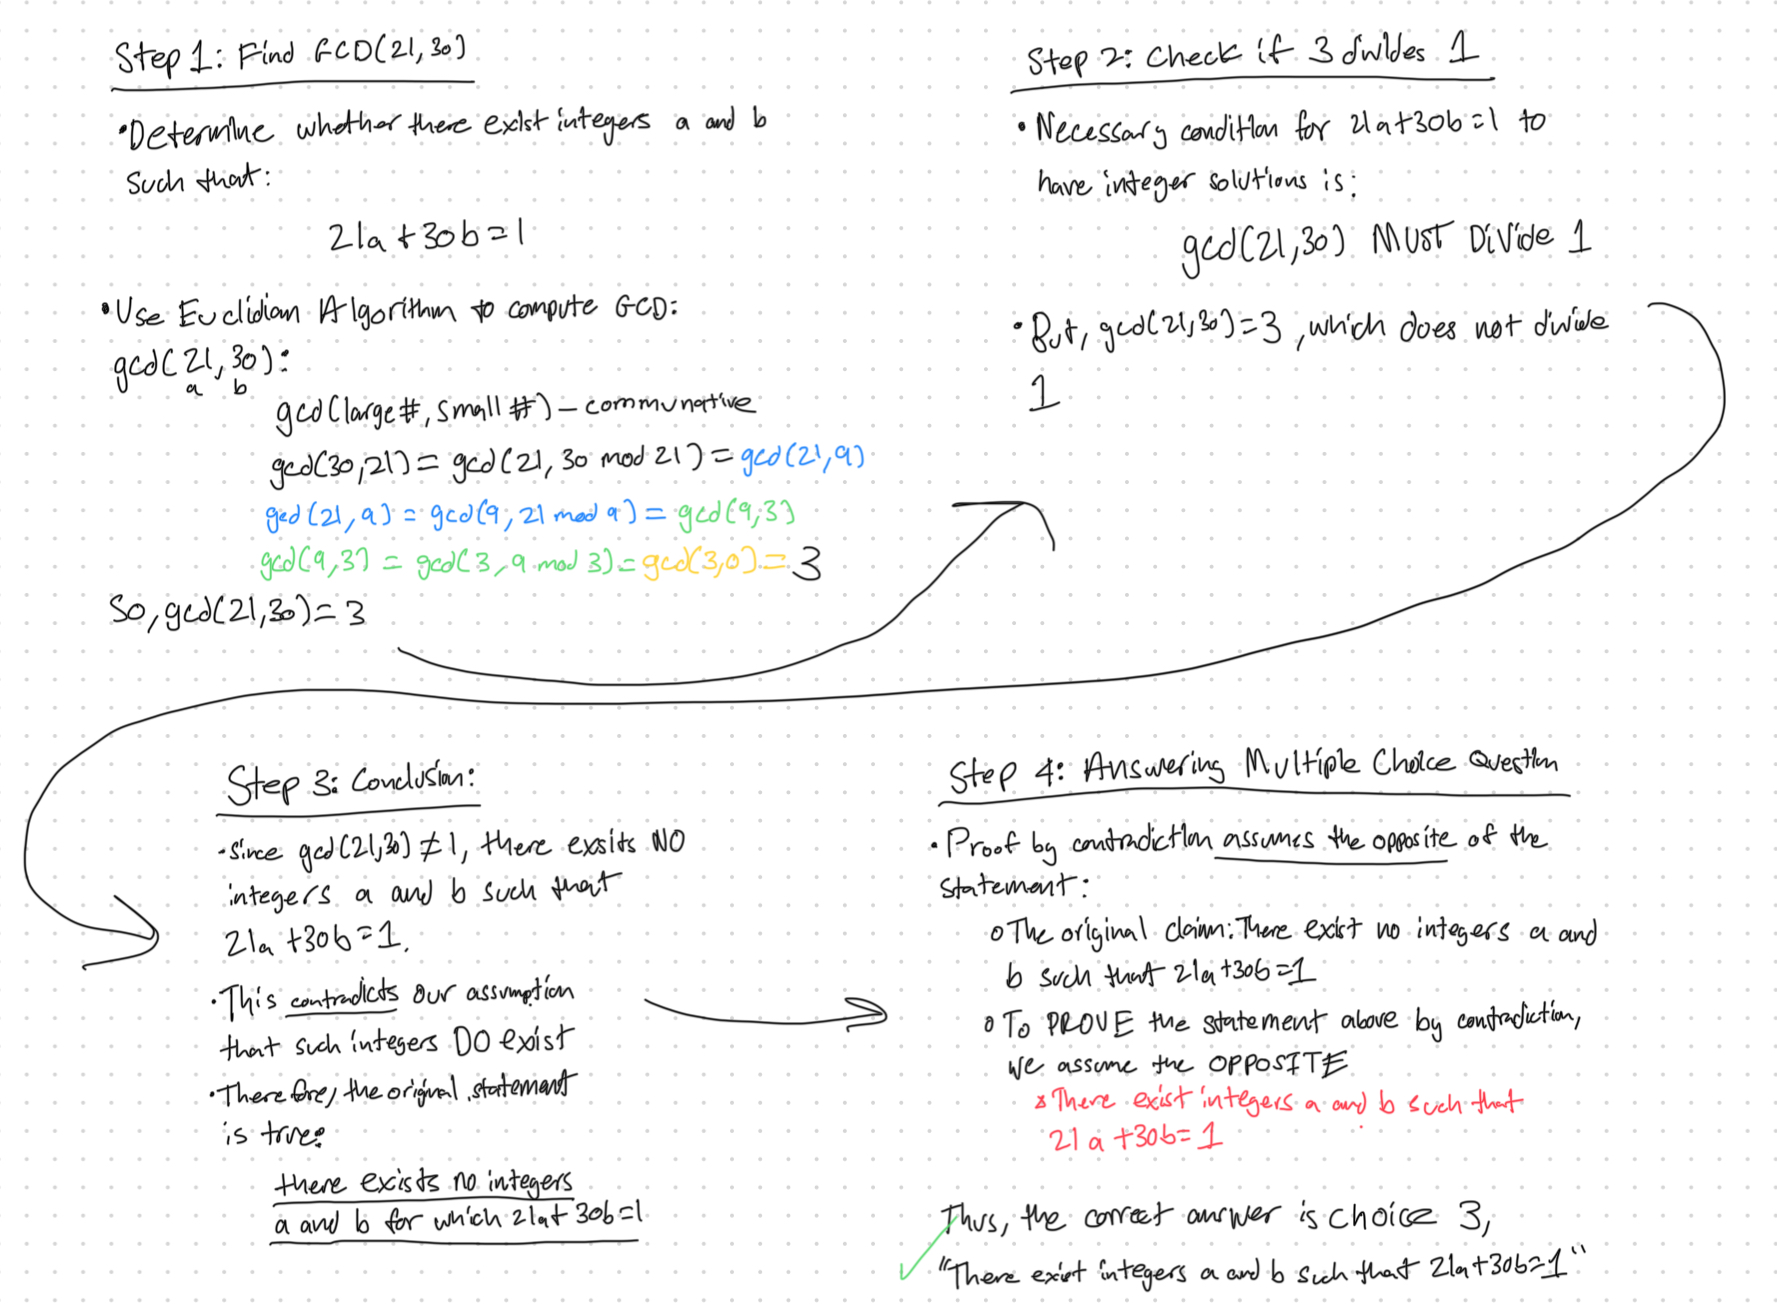 Step 1: Find GCD(21,30)
•Determine whether there exist integers a and b
such that:
21a+30b=1
•Use Euclidian Algorithm to compute GCD:
gcd(21,30):
a b
gcd(large#, small#) – communative
gcd(30,21) = gcd(21, 30 mod 21) = gcd(21,9)
gcd(21,9) = gcd(9,21 mod 9) = gcd(9,3)
gcd(9,3) = gcd(3,9 mod 3) = gcd(3,0) = 3
So, gcd(21,30)=3
Step 2: Check if 3 divides 1
•Necessary condition for 21a+30b=1 to
have integer solutions is:
gcd(21,30) MUST DiVide 1
•But, gcd(21,30)=3, which does not divide
1
Step 3: Conclusion:
•Since gcd(21,30)≠1, there exsits NO
integers a and b such that
21a+30b=1.
•This contradicts our assumption
that such integers DO exist
•Therefore, the original statement
is true:
there exists no integers
a and b for which 21a+30b=1
Step 4: Answering Multiple Choice Question
•Proof by contradiction assumes the opposite of the
statement:
o The original claim: There exist no integers a and
b such that 21a+30b=1
o To PROVE the statement above by contradiction,
we assume the OPPOSITE
* There exist integers a and b such that
21a+30b=1
Thus, the correct answer is choice 3,
"There exist integers a and b such that 21a+30b=1"